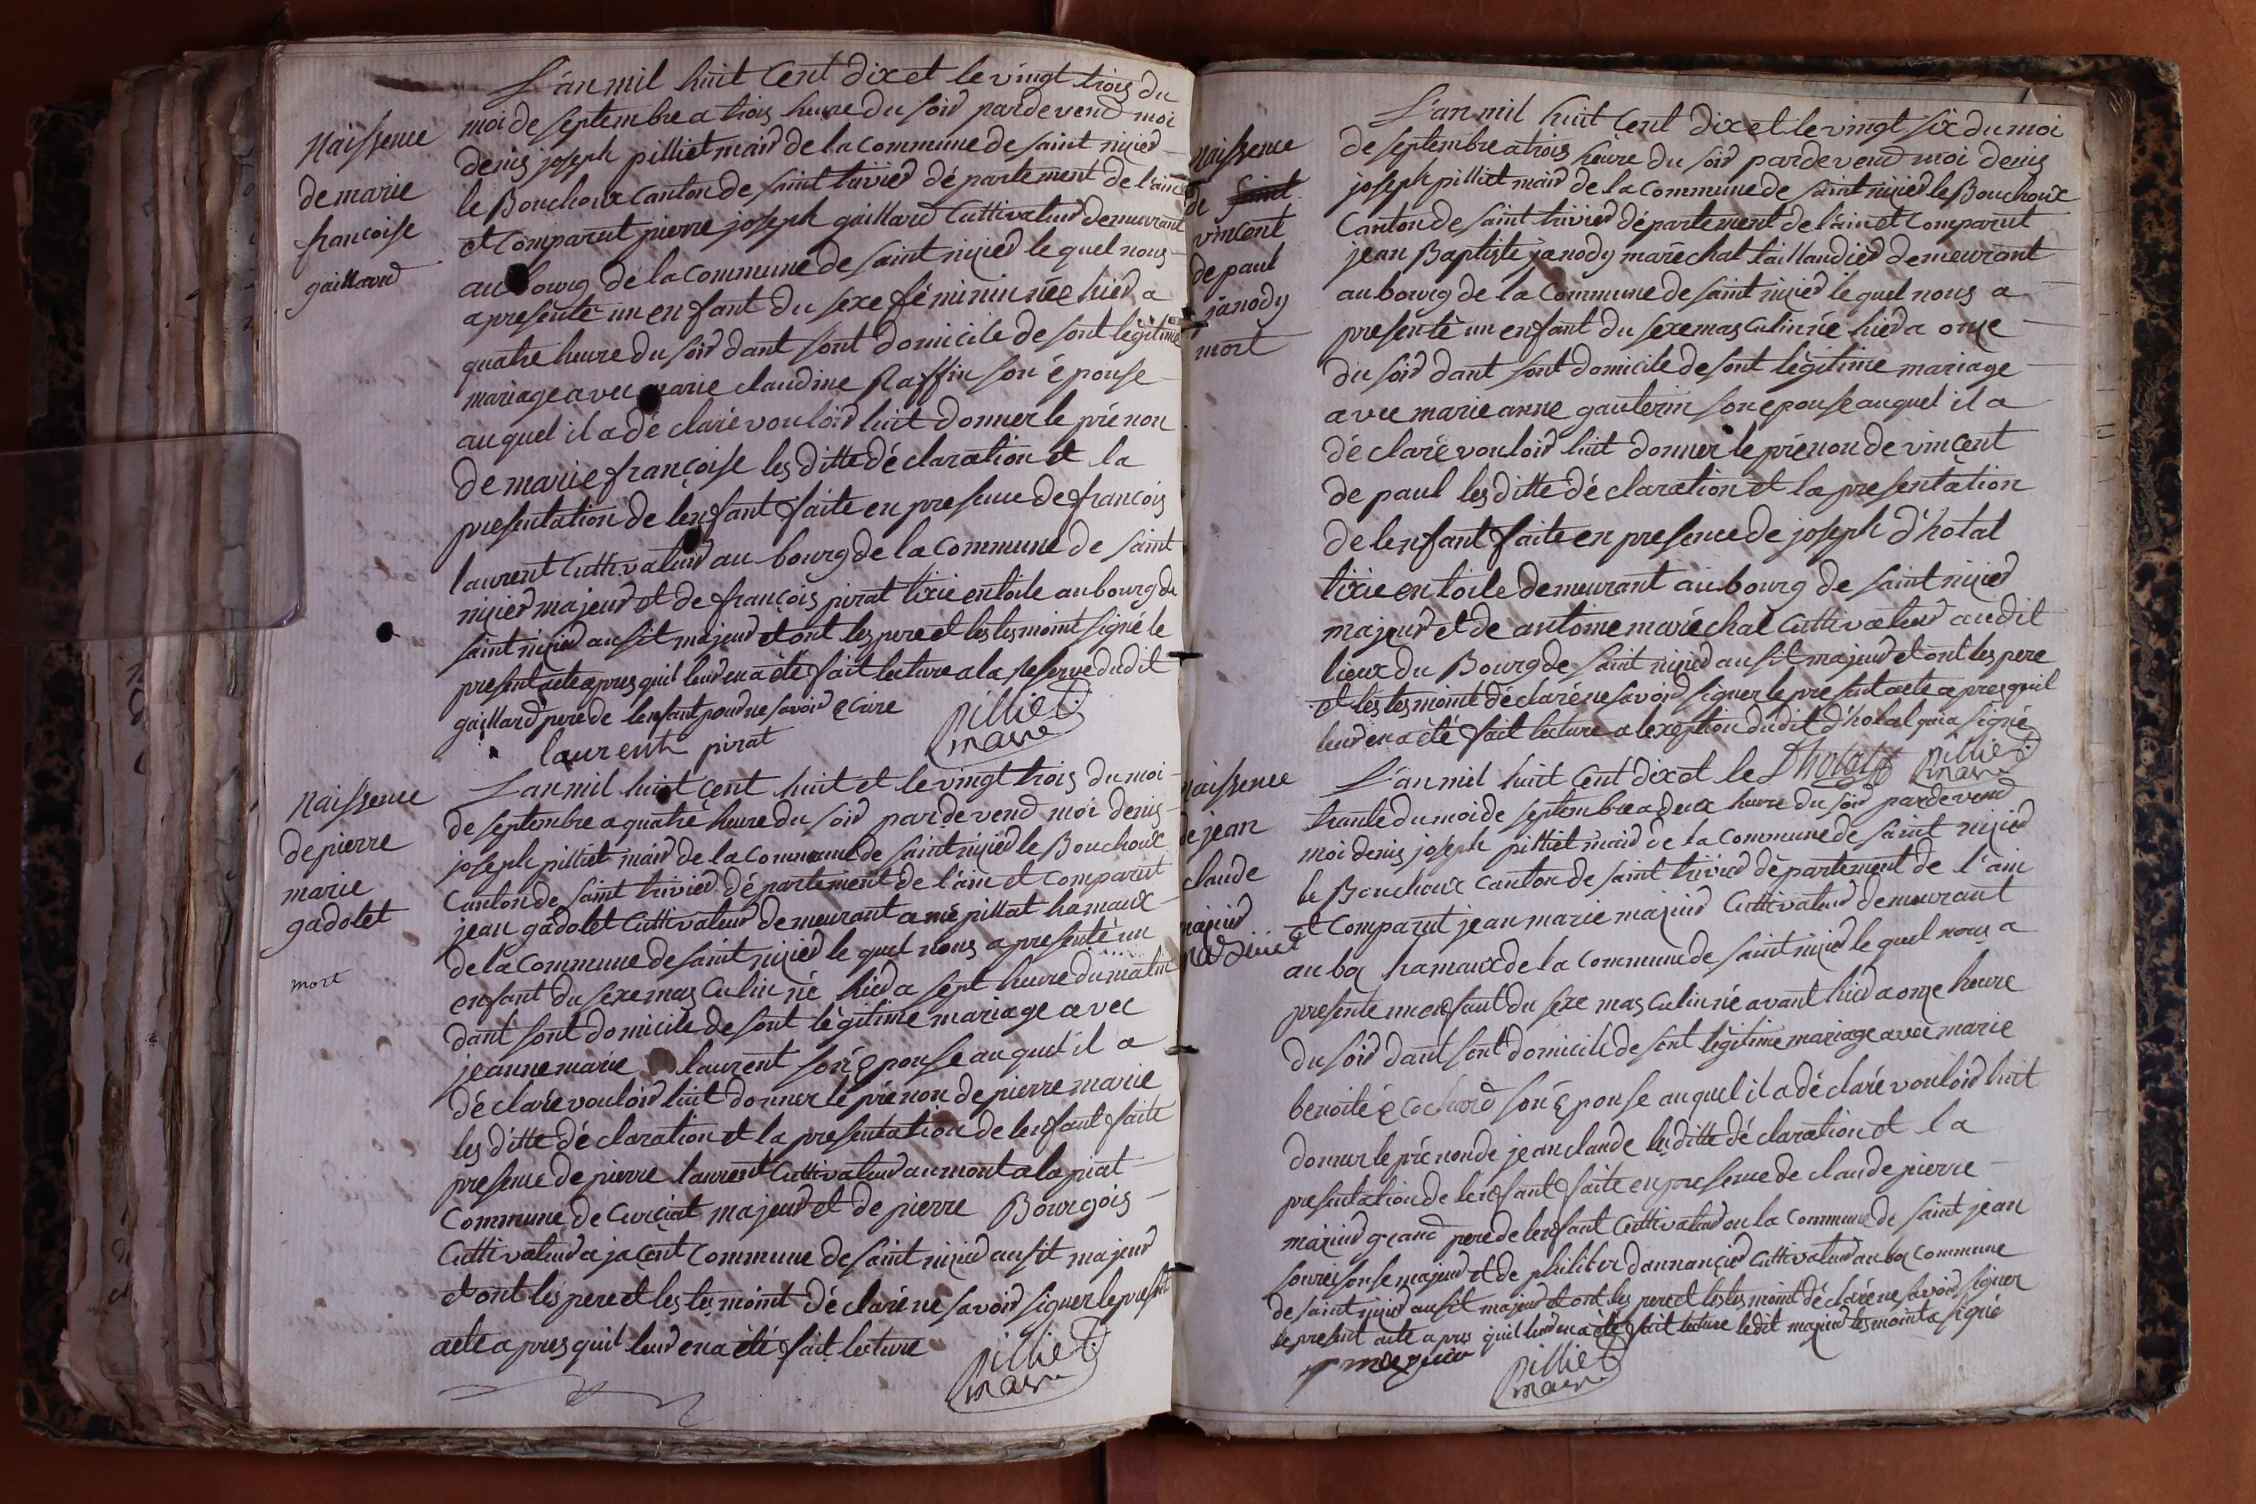 Naissence
de marie
francoise
gaillard
L'an mil huit Cent dix et le vingt trois du
moi de septembre a trois heure du soir pardevend moi
denis joseph pilliet mair de la commune de saint nizier
le Bouchoux Canton de saint trivier département de l'ain
et Comparut pierre joseph gaillard Cultivateur demeurant
au bourg de la commune de saint nizier le quel nous
a presenté un enfant du sexe féminin née hier a
quatre heure du soir dant sont domicile de sont légitime
mariage avec marie claudine Raffin son épouse
auquel il a dé claré vouloir luit donner le prénon
de marie françoise les ditte déclaration et la
presentation de lenfant faite en presence de françois
laurent Cultivateur au bourg de la Commune de saint
nizier majeur et de françois pirat tixie en toile au bourg de
saint nizier ausit majeur et ont les pere et les tesmoint signé le
present acte apres quil leur en a été fait lecture a la Reserve dudit
gaillard pere de lenfant pour ne savoir ecrire
laurent pirat Pilliet
maire
Naissence
de pierre
marie
gadolet
mort
L'an mil huit Cent huit et le vingt trois du moi
de septembre a quatre heure du soir pardevend moi denis
joseph pilliet mair de la commune de saint nizier le Bouchoux
Canton de saint trivier département de l'ain et Comparut
jean gadolet Cultivateur demeurant a mépillat hamaux
de la Commune de saint nizier le quel nous a presenté un
enfant du sexe mas Culin né hier a sept heure du matin
dant sont domicile de sont légitime mariage avec
jeanne marie laurent son épouse auquel il a
déclaré vouloir luit donner le prénon de pierre marie
les ditte déclaration et la presentation de lenfant faite
presence de pierre laurent Cultivateur au mont a la piat
Commune de Curciat majeur et de pierre Bourgois
Cultivateur a jaçent Commune de saint nizier ausit majeur
et ont les pere et les tesmoint déclaré ne savoir signer le present
acte apres quil leur en a été fait lecture Pilliet
maire
Naissence
de saint
vincent
de paul
janody
mort
L'an mil huit Cent dix et le vingt six du moi
de septembre a trois heure du soir pardevend moi denis
joseph pilliet mair de la Commune de saint nizier le Bouchoux
Canton de saint trivier département de l'ain et Comparut
jean Baptiste janody maréchal taillandier demeurant
au bourg de la Commune de saint nizier le quel nous a
presenté un enfant du sexe mas culin née hier a onze
du soir dant sont domicile de sont légitime mariage
avec marie anne gauterin son épouse auquel il a
déclaré vouloir luit donner le prénon de vincent
de paul les ditte déclaration et la presentation
de lenfant faite en presence de joseph d'hotal
tixie en toile demeurant au bourg de saint nizier
majeur et de antoine maréchal Cultivateur audit
lieux du Bourg de saint nizier ausit majeur et ont les pere
et les tesmoint déclaré ne savoir signer le present acte apres quil
leur en a été fait lecture a lexeption dudit d'hotal qui a signé
Dhotal Pilliet
maire
Naissence
de jean
claude
mazuir
L'an mil huit Cent dix et le
trante du moi de septembre a deux heure du soir pardevend
moi denis joseph pilliet mair de la Commune de saint nizier
le Bouchoux Canton de saint trivier département de l'ain
et Comparut jean marie mazuir Cultivateur demeurant
au boz hamaux de la Commune de saint nizier le quel nous a
presenté un enfant du sexe mas culin né avant hier a onze heure
du soir dant sont domicile de sont légitime mariage avec marie
benoite Cochard son épouse auquel il a déclaré vouloir luit
donner le prénon de jean claude les ditte déclaration et la
presentation de lenfant faite en presence de claude pierre
mazuir grand pere de lenfant Cultivateur en la Commune de saint jean
majeur et de philiber dannancier Cultivateur au boz Commune
de saint nizier ausit majeur et ont les pere et les tesmoint déclaré ne savoir signer
le present acte apres quil leur en a été fait lecture ledit mazuir tesmoint a signé
mazuir Pilliet
maire